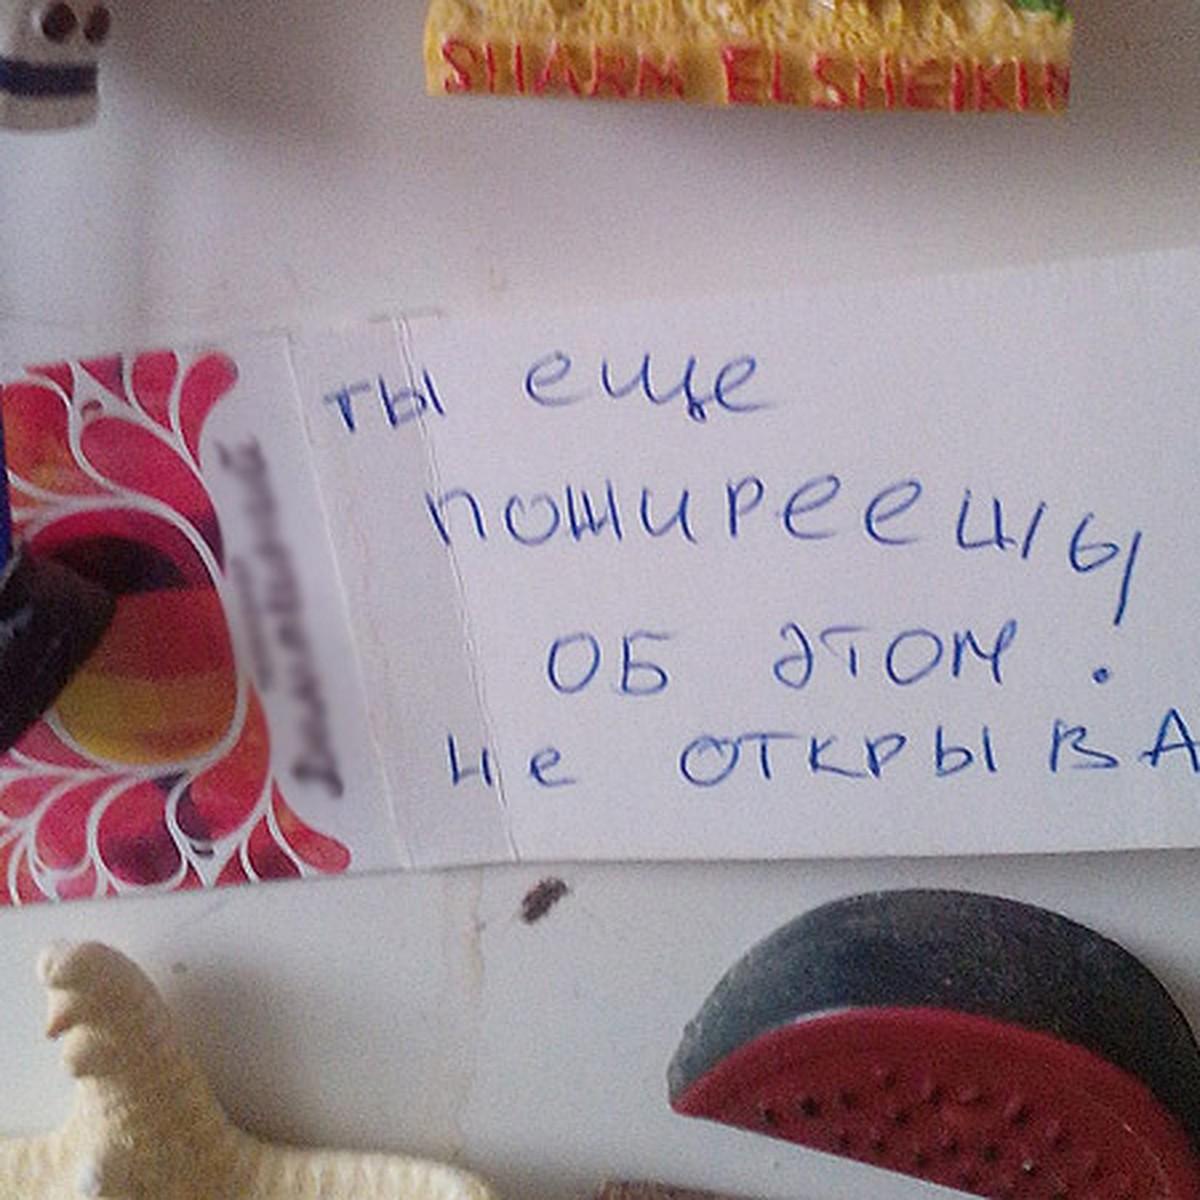 SHARM EL SHEIKH
ты еще
пожиреешь,
об этом.
не открыва